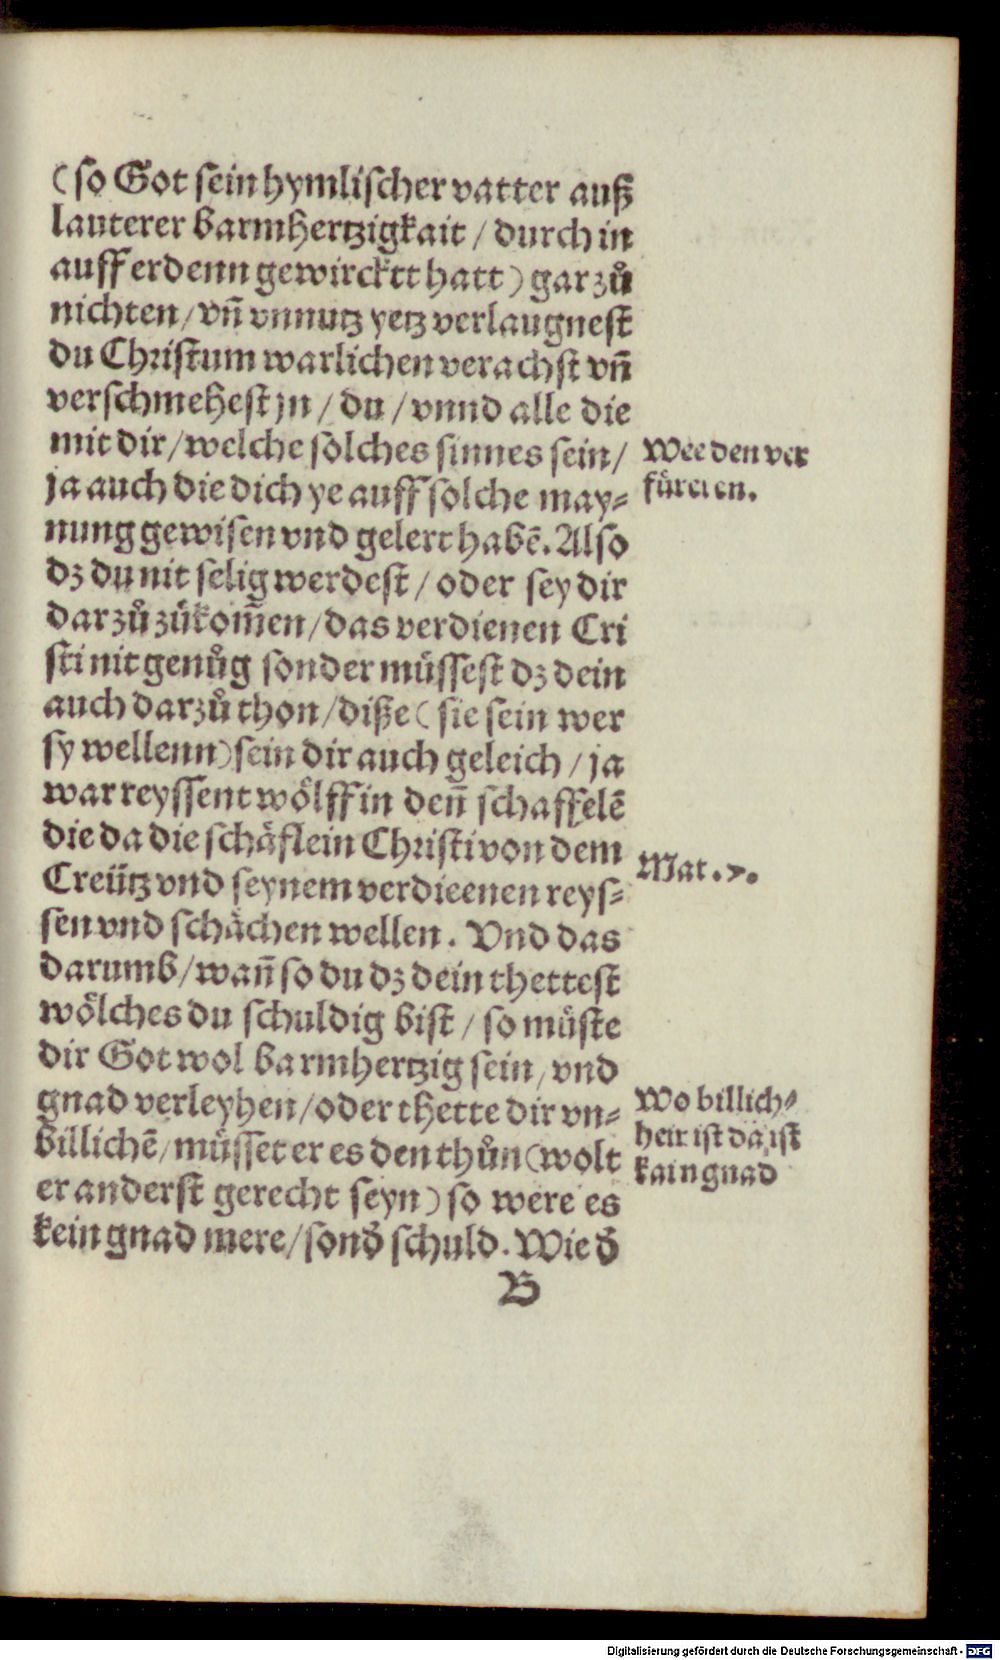 (so Got sein hymlischer vatter auß
lauterer barmhertzigkait / durch in
auff erdenn gewircktt hatt) gar zů
nichten / vñ vnnutz yetz verlaugnest
du Christum warlichen verachst vñ
verschmehest jn / du / vnnd alle die
mit dir / welche solches sinnes sein /
ja auch die dich ye auff solche may-
nung gewisen vnd gelert habẽ. Also
dz du nit selig werdest / oder sey dir
darzů zůkom̃en / das verdienen Cri
sti nit genůg sonder müssest dz dein
auch darzů thon / diße (sie sein wer
sy wellenn) sein dir auch geleich / ja
war reyssent wölff in denñ schaffelẽ
die da die schäflein Christi von dem
Creütz vnd seynem verdieenen reys-
sen vnd schächen wellen. Vnd das
darumb / wañ so du dz dein thettest
wölches du schuldig bist / so müste
dir Got wol barmhertzig sein / vnd
gnad verleyhen / oder thette dir vn-
billichẽ / müsset er es den thůn (wolt
er anderst gerecht seyn) so were es
kein gnad mere / sond' schuld. Wie d'
B
Wee den ver
füreren.
Mat. 7.
Wo billich-
heit ist da ist
kain gnad
Digitalisierung gefördert durch die Deutsche Forschungsgemeinschaft - DFG